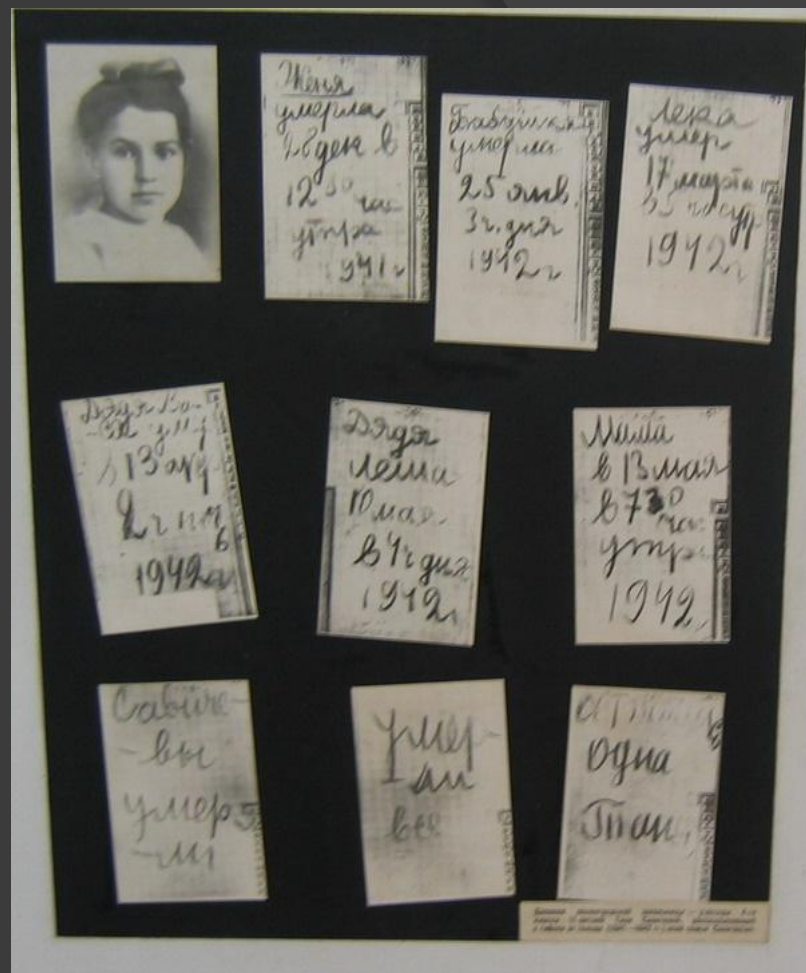 Женя
умерла
28 дек в
12 30 час
утра
1941 г
Бабушка
умерла
25 янв.
3 ч. дня
1942 г
Лека
умер
17 марта
в 5 час ут
1942 г
Дядя Ва-
-ся умер
в 13 апр
2 ч ноч
1942 г
Дядя
Леша
10 мая
в 4 ч дня
1942 г
Мама
в 13 мая
в 7 30 час
утра
1942
Савиче-
-вы
умер
-ли
умер-
-ли
все
одна
Таня